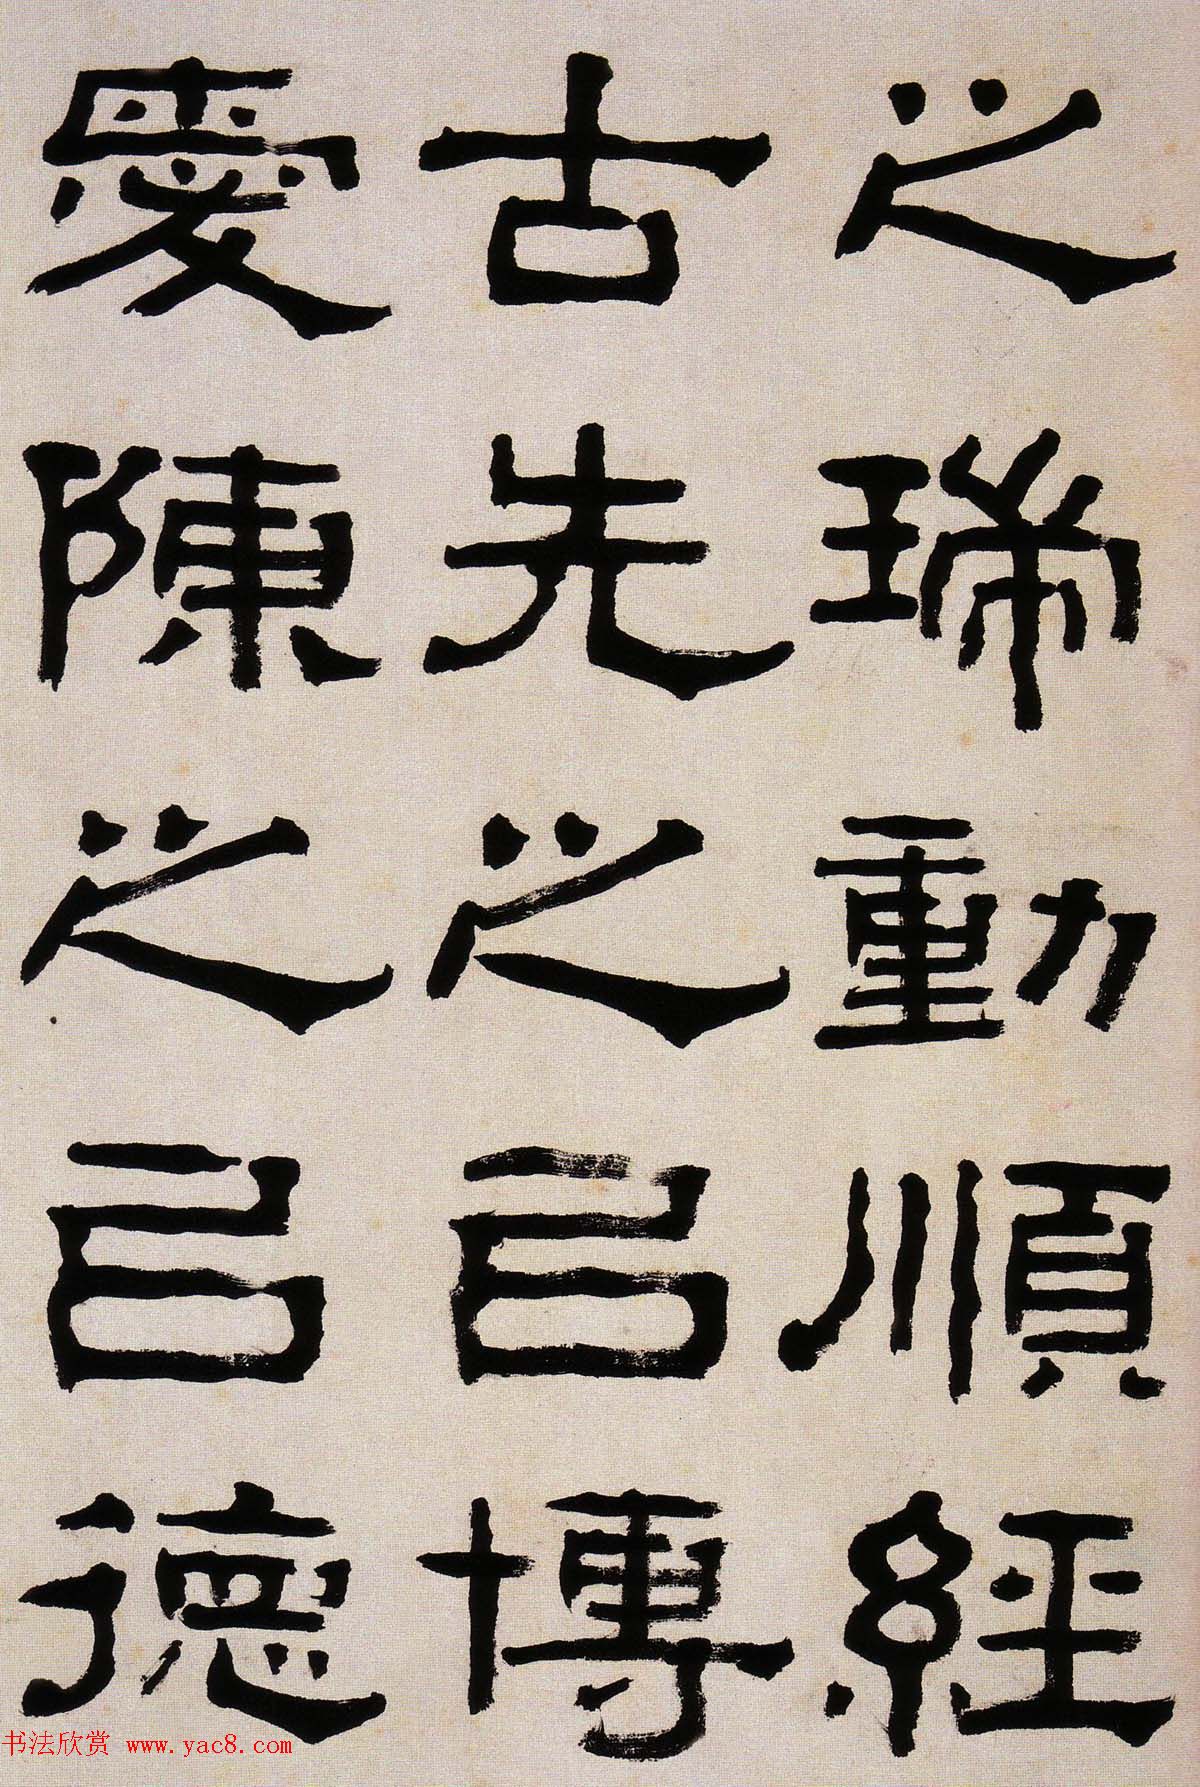 之瑞動順經
古先之以博
愛陳之以德
书法欣赏 www.yac8.com